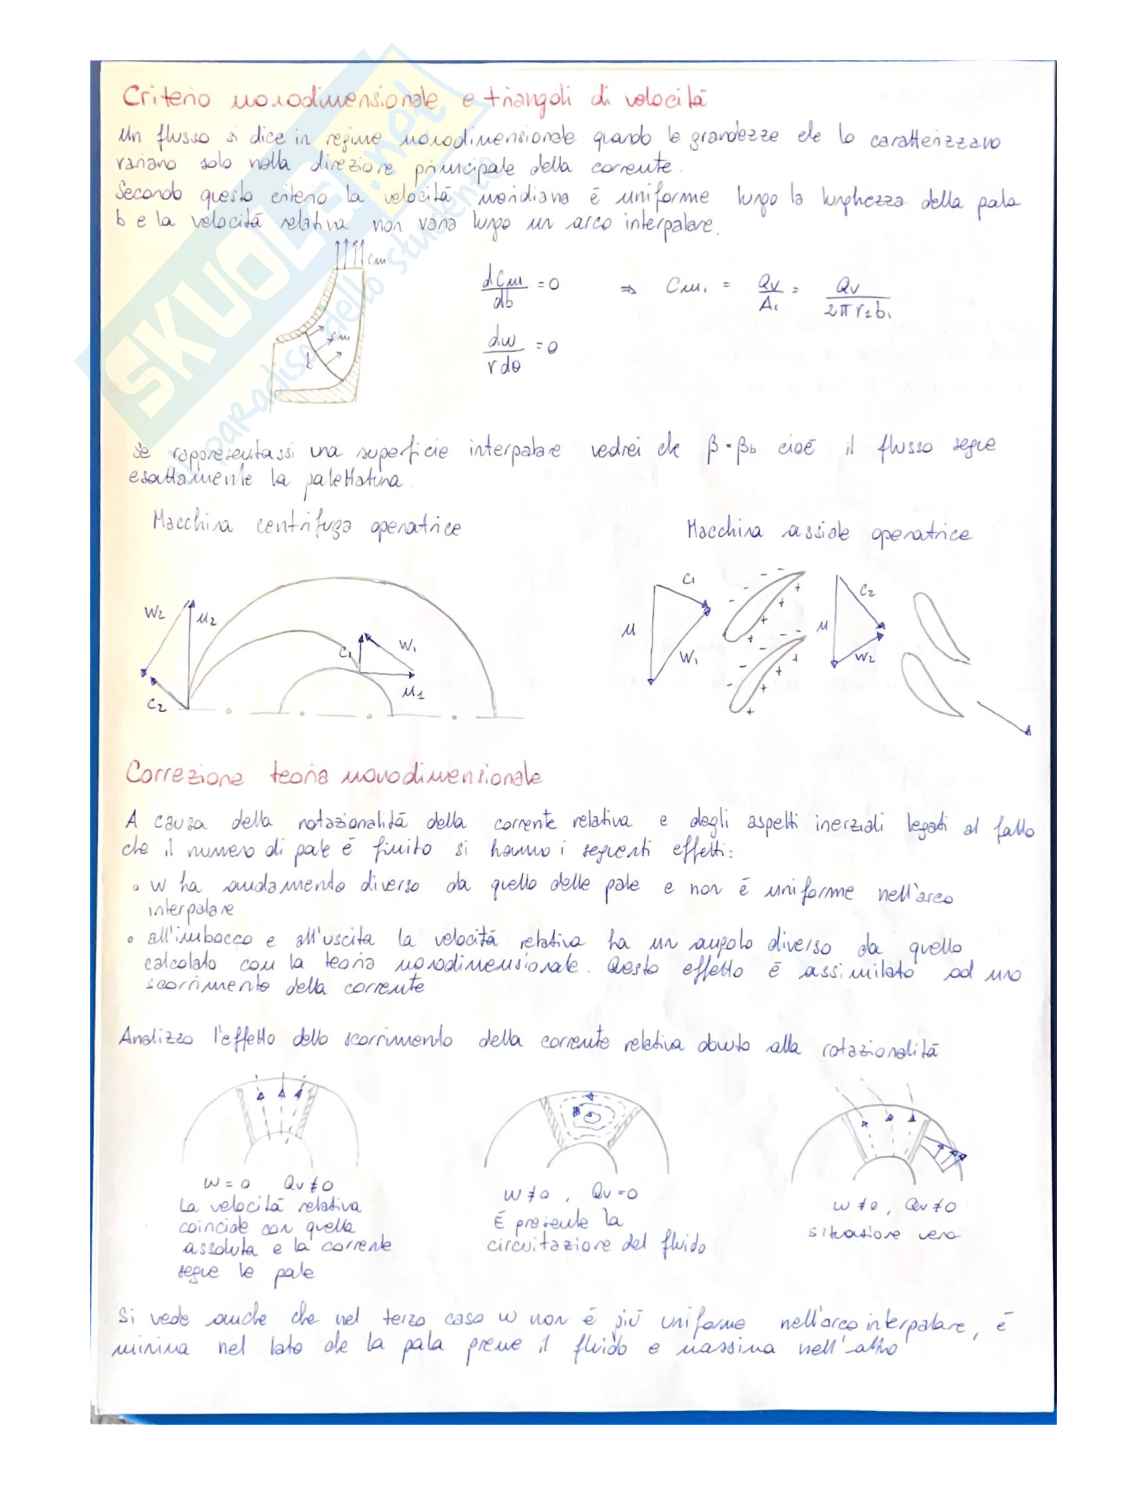 Criterio monodimensionale e triangoli di velocità
Un flusso si dice in regime monodimensionale quando le grandezze che lo caratterizzano
variano solo nella direzione principale della corrente.
Secondo questo criterio la velocità meridiana è uniforme lungo la lunghezza della pala
b e la velocità relativa non varia lungo un arco interpalare.
cm
dCm/db = 0 ⇒ Cm₁ = Qv/A₁ = Qv/2πr₁b₁
cm
b
dw/r dθ = 0
Se rappresentassi una superficie interpalare vedrei che β=βb cioè il flusso segue
esattamente la palettatura.
Macchina centrifuga operatrice
Macchina assiale operatrice
W2 u2 C1 W1 u1 C2
C1 u W1 C2 u W2
Correzione teoria monodimensionale
A causa della rotazionalità della corrente relativa e degli aspetti inerziali legati al fatto
che il numero di pale è finito si hanno i seguenti effetti:
• w ha andamento diverso da quello delle pale e non è uniforme nell'arco
interpalare
• all'imbocco e all'uscita la velocità relativa ha un angolo diverso da quello
calcolato con la teoria monodimensionale. Questo effetto è assimilato ad uno
scorrimento della corrente
Analizzo l'effetto dello scorrimento della corrente relativa dovuto alla rotazionalità
w = 0 Qv ≠ 0
La velocità relativa
coincide con quella
assoluta e la corrente
segue le pale
w ≠ 0, Qv = 0
È presente la
circuitazione del fluido
w ≠ 0, Qv ≠ 0
situazione vera
Si vede anche che nel terzo caso w non è più uniforme nell'arco interpalare, è
minima nel lato che la pala preme il fluido e massima nell'altro
SKUOLA.net
il paradiso dello studente